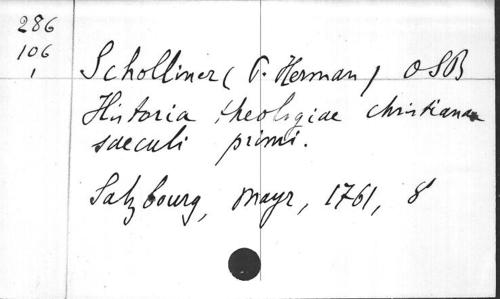 286
106
1
Scholliner (P. Herman) OSB
Historia theologiae christianae
saeculi primi.
Salzbourg, Mayr, 1761, 8°